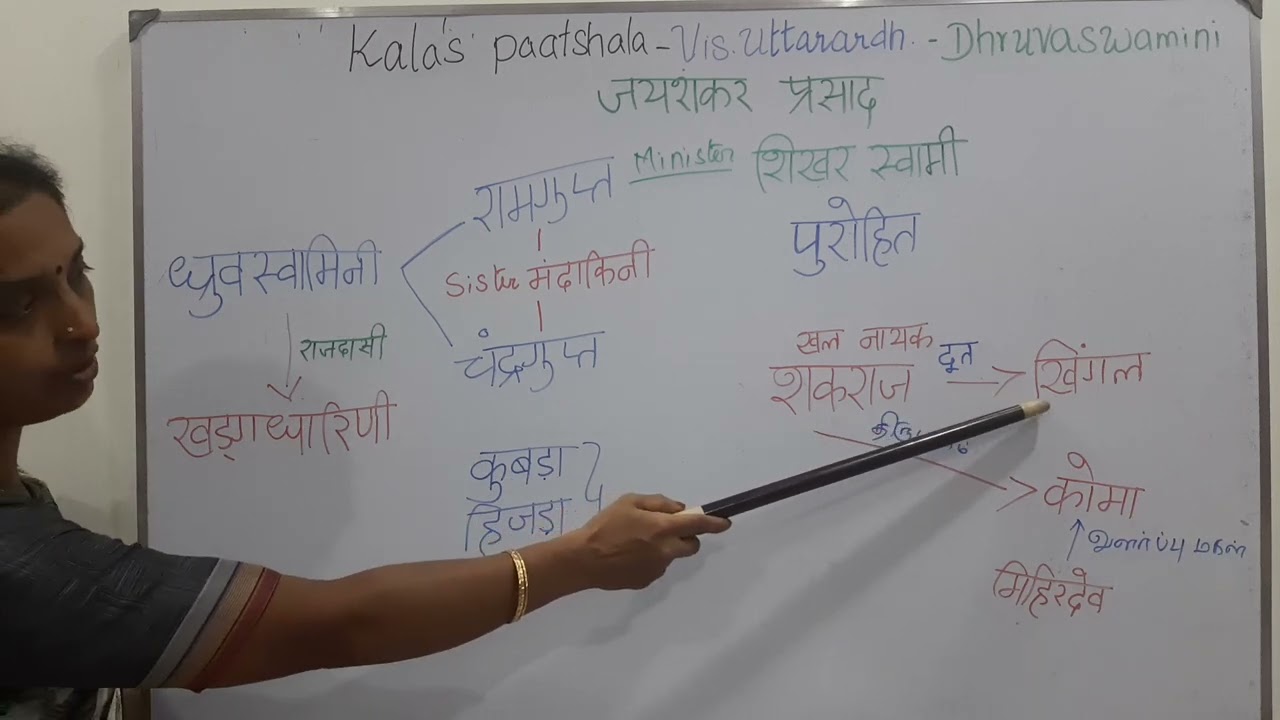 Kala's paatshala - Vis. Uttarardh. - Dhruvaswamini
जयशंकर प्रसाद
रामगुप्त Minister शिखर स्वामी
पुरोहित
ध्रुवस्वामिनी
Sister मंदाकिनी
राजदासी
चंद्रगुप्त
खल नायक
शकराज दूत खिंगल
खड्गधारिणी
कुबड़ा
हिजड़ा
कोमा
வளர்ப்பு மகள்
मिहिरदेव